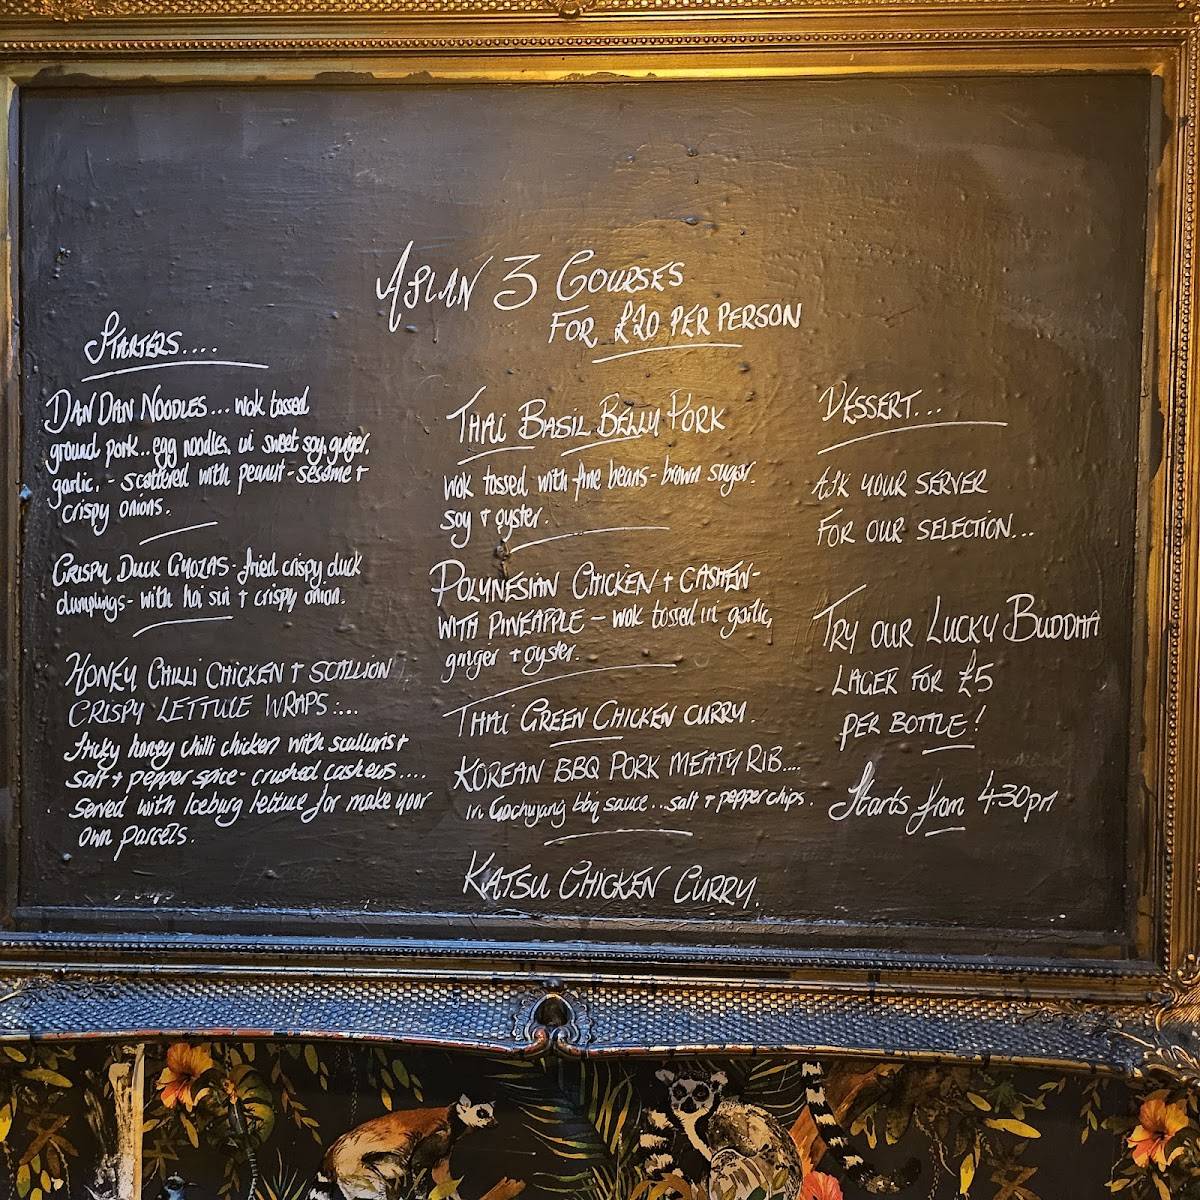 ASIAN 3 COURSES
FOR £20 PER PERSON
STARTERS....
DAN DAN NOODLES... wok tossed
ground pork.. egg noodles, in sweet soy, ginger,
garlic, - scattered with peanut - sesame +
crispy onions.
CRISPY DUCK GYOZAS - fried crispy duck
dumplings - with hoi sin + crispy onion.
HONEY CHILLI CHICKEN + SCALLION
CRISPY LETTUCE WRAPS....
Sticky honey chilli chicken with scallions +
salt + pepper spice - crushed cashews....
served with Iceburg lettuce for make your
own parcels.
THAI BASIL BELLY PORK
wok tossed with fine beans - brown sugar.
soy + oyster.
POLYNESIAN CHICKEN + CASHEW -
WITH PINEAPPLE - wok tossed in garlic,
ginger + oyster.
THAI GREEN CHICKEN CURRY.
KOREAN BBQ PORK MEATY RIB....
in Gochujang bbq sauce... salt + pepper chips.
KATSU CHICKEN CURRY.
DESSERT...
ASK YOUR SERVER
FOR OUR SELECTION...
TRY OUR LUCKY BUDDHA
LAGER FOR £5
PER BOTTLE!
Starts from 4:30pm